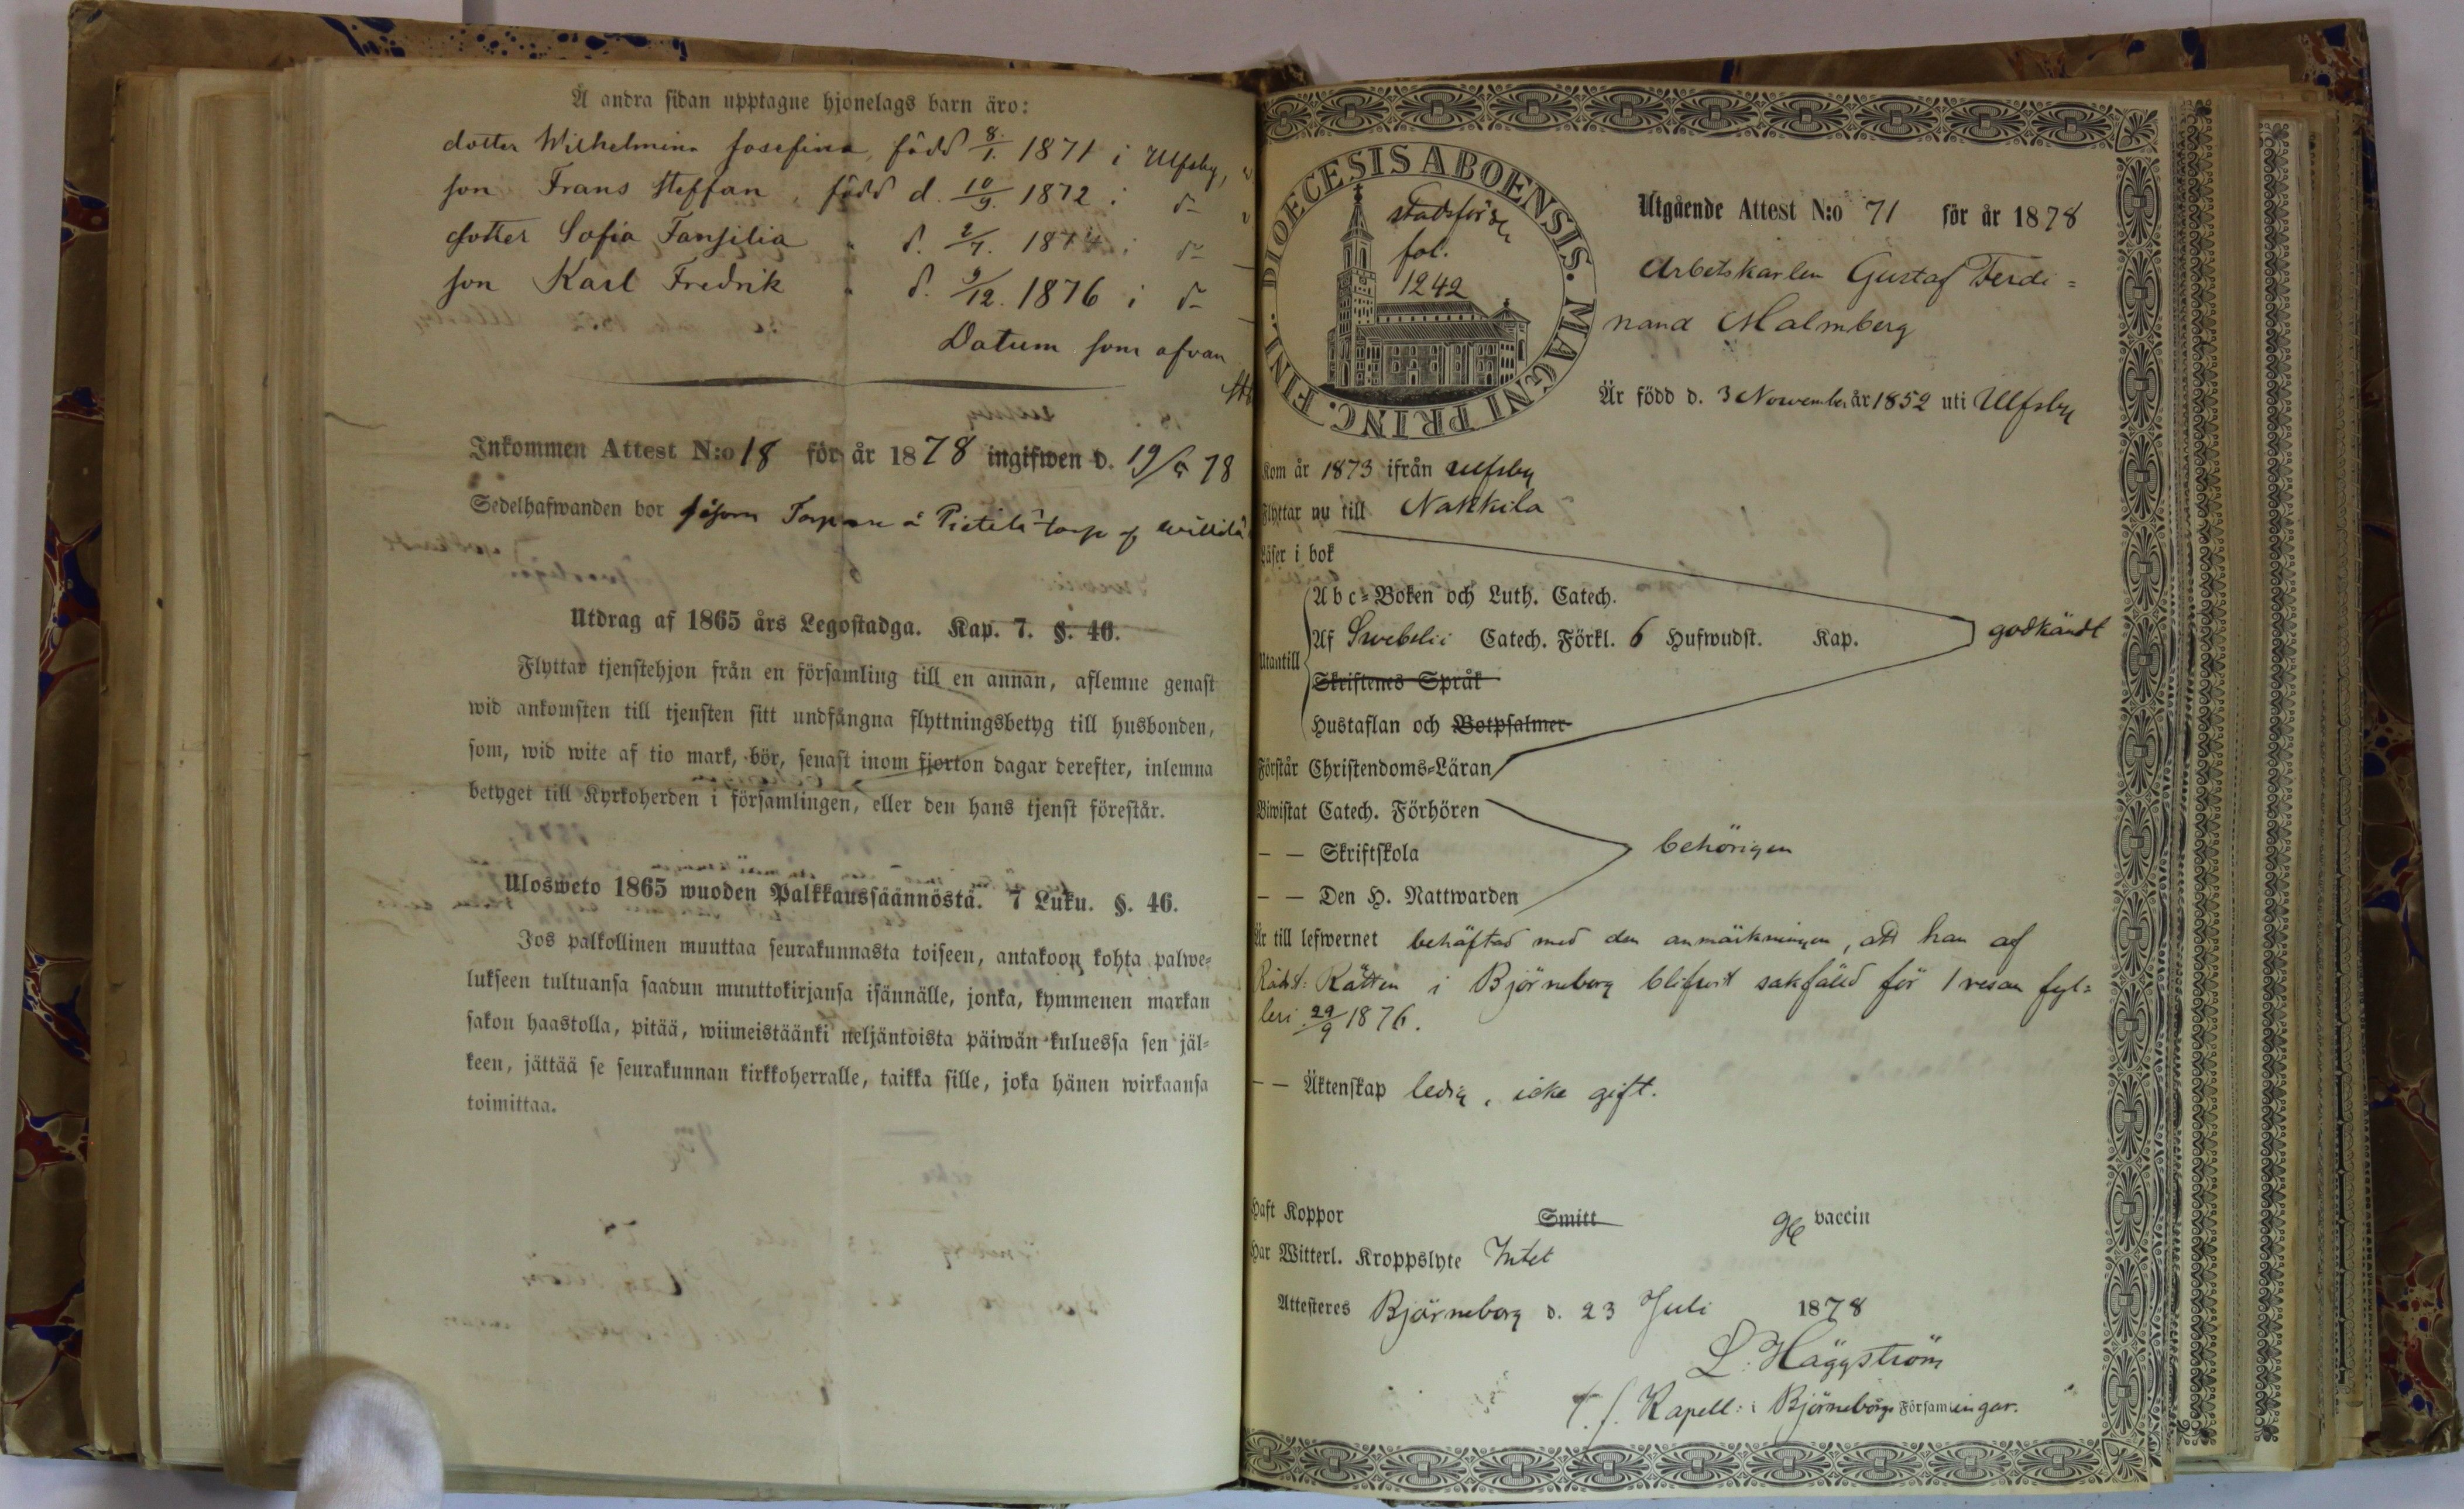 Å andra sidan upptagne hjonelags barn äro:
dotter Wilhelmina Josefina, född 8/1. 1871 i Ulfsby,
son Frans Steffan, född d. 10/9. 1872 i d-
dotter Sofia Fansilia " d. 2/7. 1874 i d-
son Karl Fredrik " d. 9/12. 1876 i d-
Datum som ofvan
Inkommen Attest N:o 18 för år 1878 ingifwen d. 19/5 78
Sedelhafwanden bor såsom Torpare å Pietilä torp af
Utdrag af 1865 års Legostadga. Kap. 7. §. 46.
Flyttar tjenstehjon från en församling till en annan, aflemne genast
wid ankomsten till tjensten sitt undfångna flyttningsbetyg till husbonden,
som, wid wite af tio mark, bör, senast inom fjorton dagar derefter, inlemna
betyget till Kyrkoherden i församlingen, eller den hans tjenst förestår.
Ulosweto 1865 wuoden Palkkaussäännöstä. 7 Luku. §. 46.
Jos palkollinen muuttaa seurakunnasta toiseen, antakoon kohta palwe-
lukseen tultuansa saadun muuttokirjansa isännälle, jonka, kymmenen markan
sakon haastolla, pitää, wiimeistäänki neljäntoista päiwän kuluessa sen jäl-
keen, jättää se seurakunnan kirkkoherralle, taikka sille, joka hänen wirkaansa
toimittaa.
DIOECESIS ABOENSIS. MAGNI PRINC. FINL.
Stadsförs
fol.
1242
Utgående Attest N:o 71 för år 1878
Arbetskarlen Gustaf Ferdi-
nand Malmberg
Är född d. 3 November år 1852 uti Ulfsby
Kom år 1873 ifrån Ulfsby
Flyttar nu till Nakkila
Läser i bok
Abc-Boken och Luth. Catech.
Utantill
Af Swebelii Catech. Förkl. 6 Hufwudst. Kap.
godkändt
Skriftenes Språk
Hustaflan och Botpsalmer
Förstår Christendoms-Läran
Biwistat Catech. Förhören
— — Skriftskola
behörigen
— — Den H. Nattwarden
Är till lefwernet behäftad med den anmärkningen, att han af
Rådst: Rätten i Björneborg blifwit sakfälld för 1 resan fyl-
leri 29/9 1876.
— — Äktenskap ledig, icke gift.
Haft Koppor Smitt vaccin
Har Witterl. Kroppslyte Intet
Attesteres Björneborg d. 23 Juli 1878
L. Häggström
t. f. Kapell: i Björneborgs Församlingar.